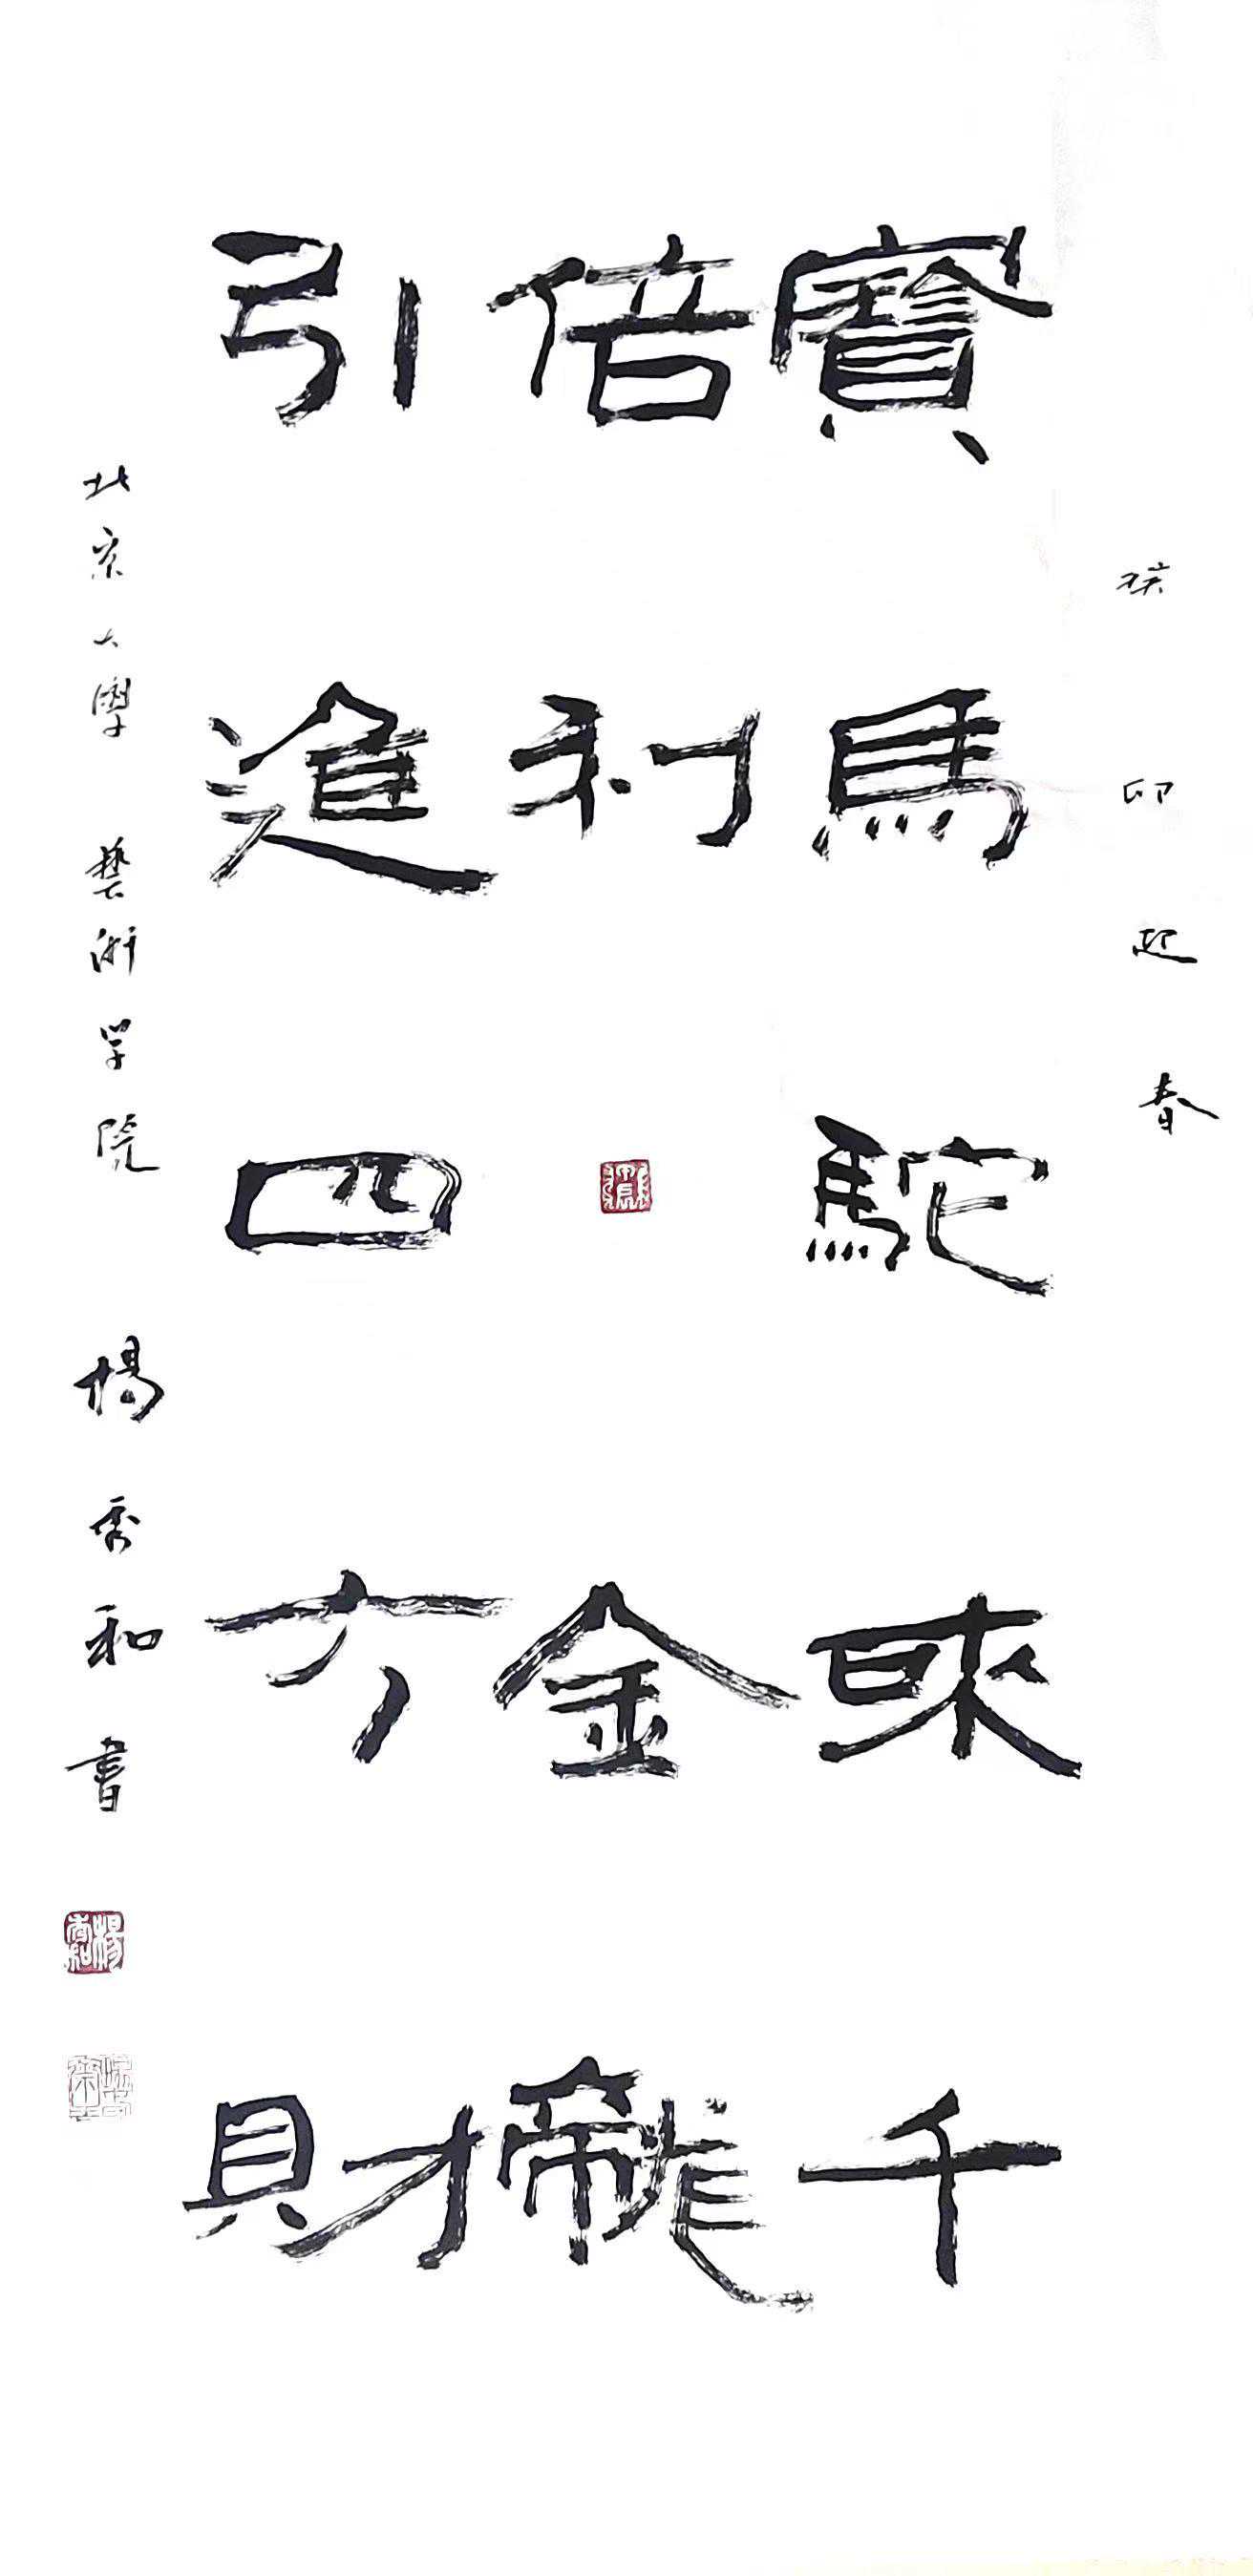 癸卯迎春
寶馬駝來千
倍利金龍
引進四方財
北京大學藝術学院楊秀和書
楊秀和